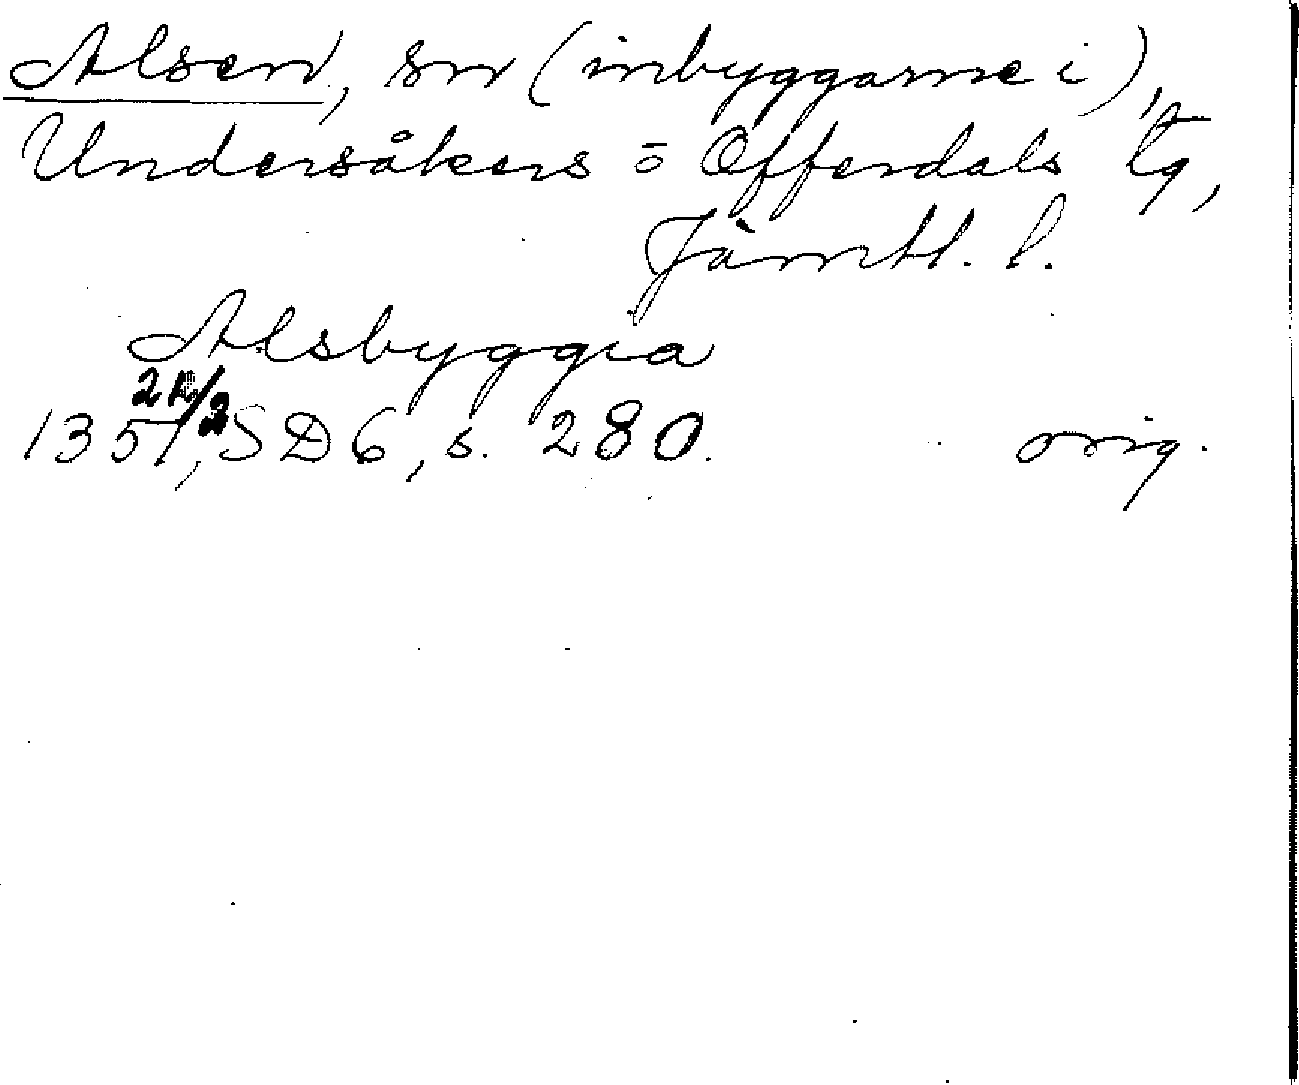 Alsen, sn (inbyggarne i),
Undersåkers o Offerdals tg,
Jämtl. l.
Alsbyggia
1351, SD 6, s. 280. orig.